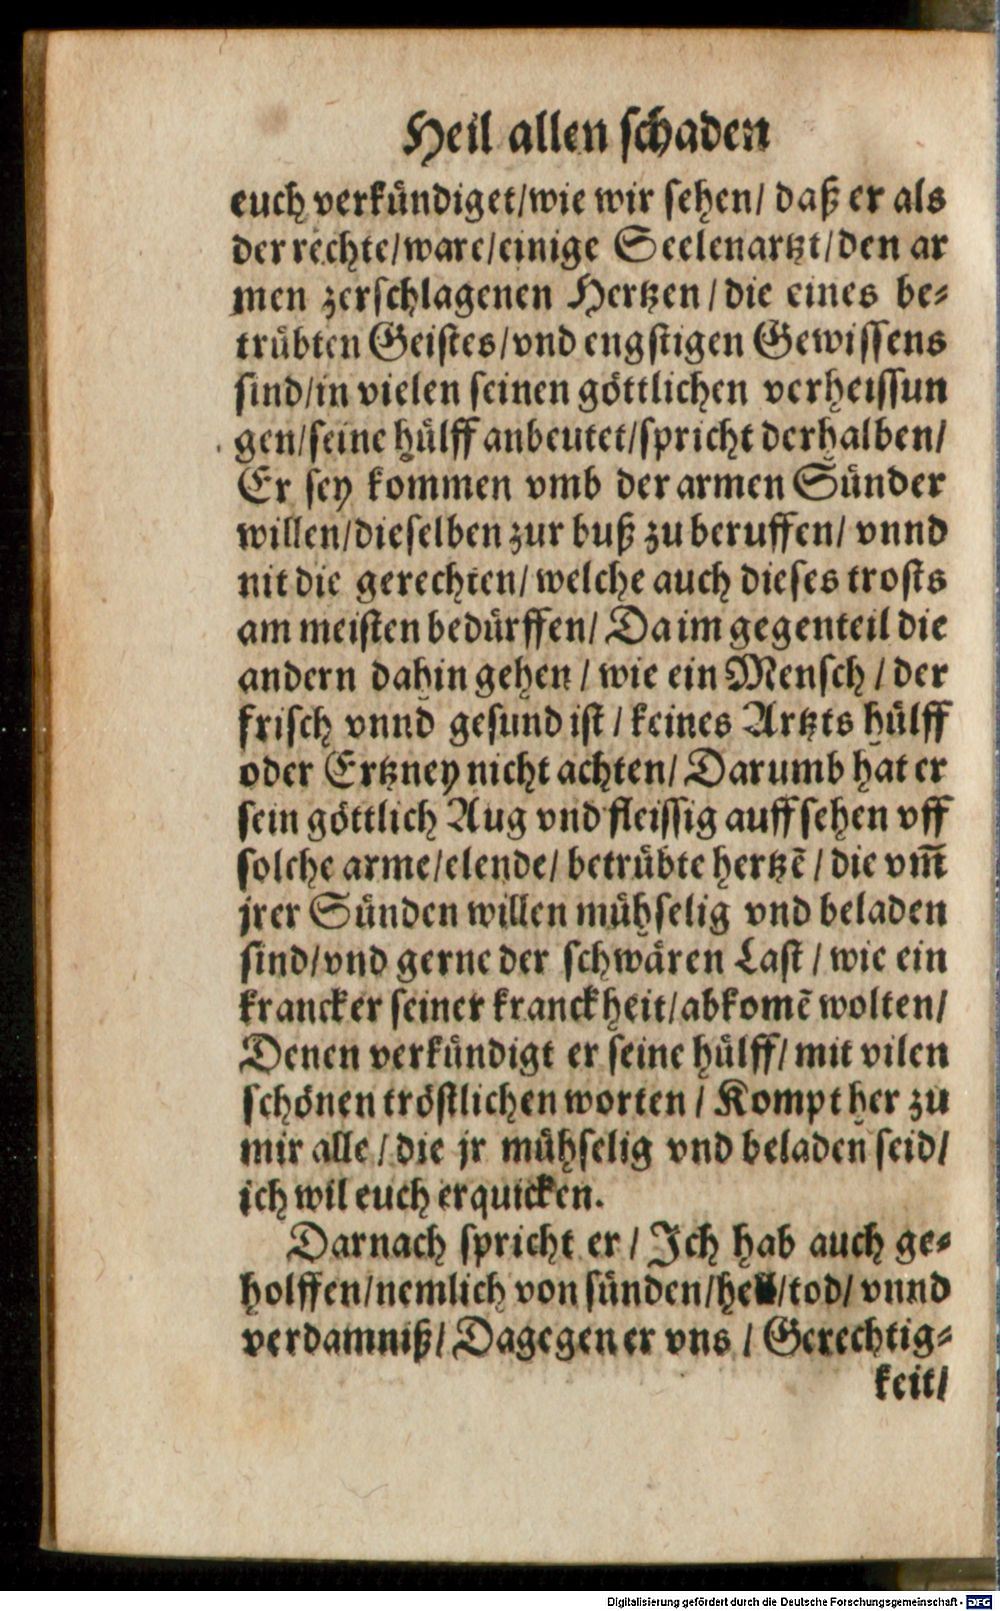 Heil allen schaden
euch verkündiget/wie wir sehen/ daß er als
der rechte/ware/einige Seelenartzt/den ar
men zerschlagenen Hertzen/die eines be-
trübten Geistes/vnd engstigen Gewissens
sind/in vielen seinen göttlichen verheissun
gen/seine hülff anbeutet/spricht derhalben/
Er sey kommen vmb der armen Sünder
willen/dieselben zur buß zu beruffen/ vnnd
nit die gerechten/ welche auch dieses trosts
am meisten bedürffen/ Da im gegenteil die
andern dahin gehen / wie ein Mensch / der
frisch vnnd gesund ist / keines Artzts hülff
oder Ertzney nicht achten/ Darumb hat er
sein göttlich Aug vnd fleissig auffsehen vff
solche arme/elende/ betrübte hertzē / die vm̄
jrer Sünden willen mühselig vnd beladen
sind/vnd gerne der schwären Last / wie ein
krancker seiner kranckheit/abkomē wolten/
Denen verkündigt er seine hülff/ mit vilen
schönen tröstlichen worten / Kompt her zu
mir alle / die jr mühselig vnd beladen seid/
ich wil euch erquicken.
Darnach spricht er / Ich hab auch ge-
holffen/nemlich von sünden/hell/tod/ vnnd
verdamniß/ Dagegen er vns / Gerechtig-
keit/
Digitalisierung gefördert durch die Deutsche Forschungsgemeinschaft - DFG